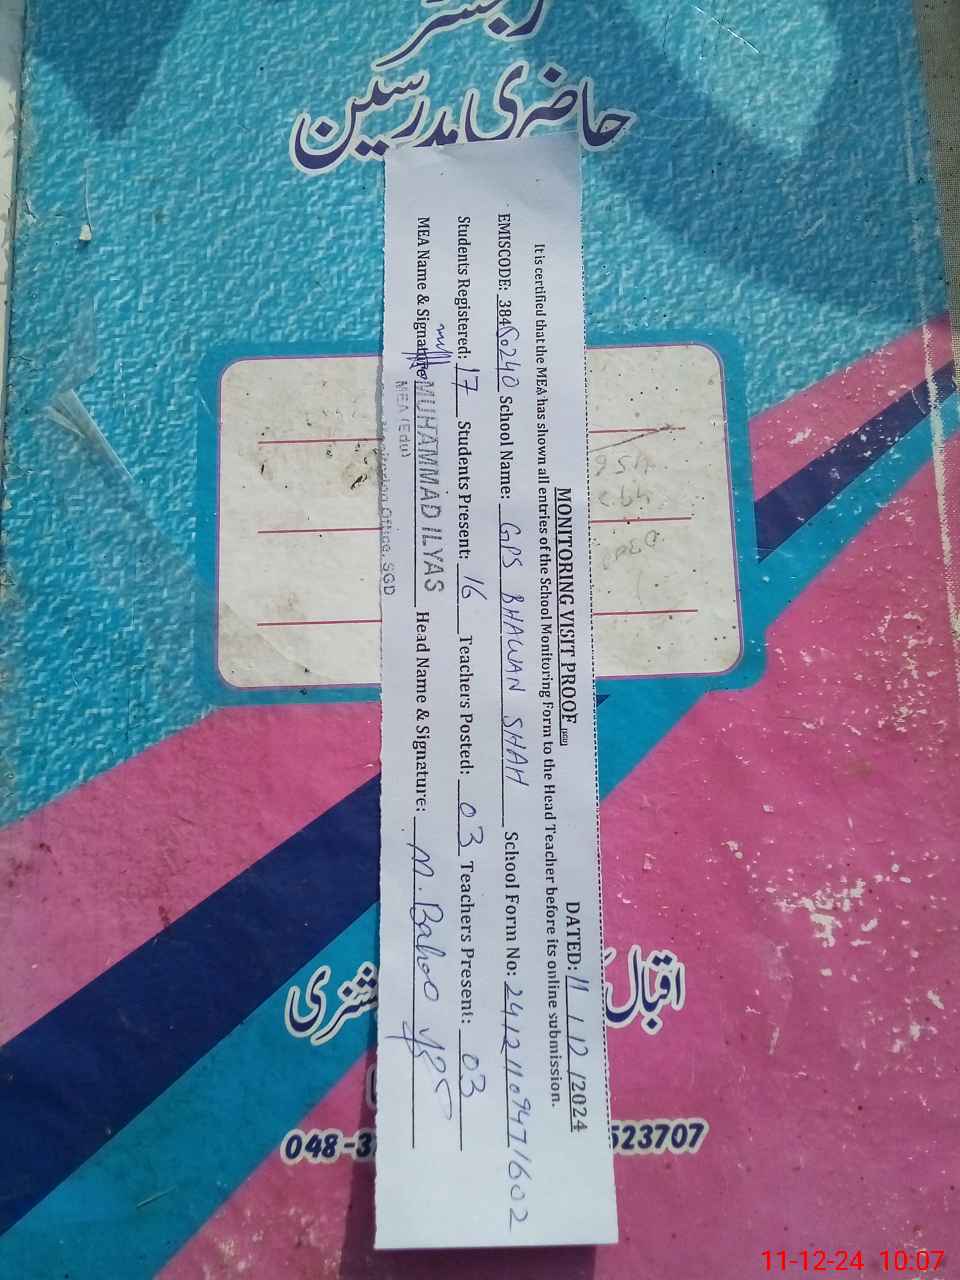 رجسٹر
حاضری مدرسین
MONITORING VISIT PROOF
DATED: 11 / 12 /2024
It is certified that the MEA has shown all entries of the School Monitoring Form to the Head Teacher before its online submission.
EMISCODE: 38450240 School Name: GPS BHAWAN SHAH School Form No: 2412110947 1602
Students Registered: 17 Students Present: 16 Teachers Posted: 03 Teachers Present: 03
MEA Name & Signature MUHAMMAD ILYAS Head Name & Signature: M. Bahoo
MEA (Edu)
Office, SGD
اقبال
048-37 523707
11-12-24 10:07